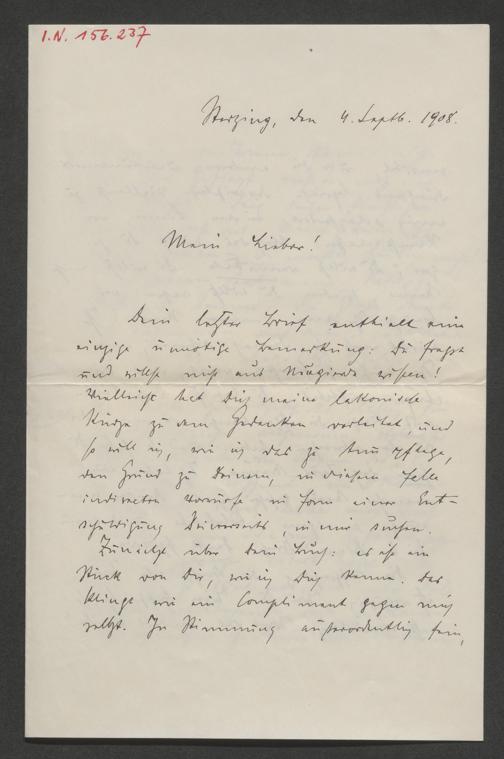 I.N. 156.237
Sterzing, den 4. Septb. 1908.
Mein Lieber!
Dein letzter Brief enthielt eine
einzige unnötige Bemerkung: Du fragst
und willst nicht aus Neugierde wissen!
Vielleicht hat Dich meine lakonische
Kürze zu dem Gedanken verleitet, und
so will ich, wie ich das zu tun pflege,
den Grund zu Deinem, in diesem Falle
indirecten Vorwurfe in Form einer Ent-
schuldigung Deinerseits, in mir suchen.
Zunächst über Dein Buch: es ist ein
Stück von Dir, wie ich Dich kenne. Das
klingt wie ein Compliment gegen mich
selbst. In Stimmung außerordentlich fein,